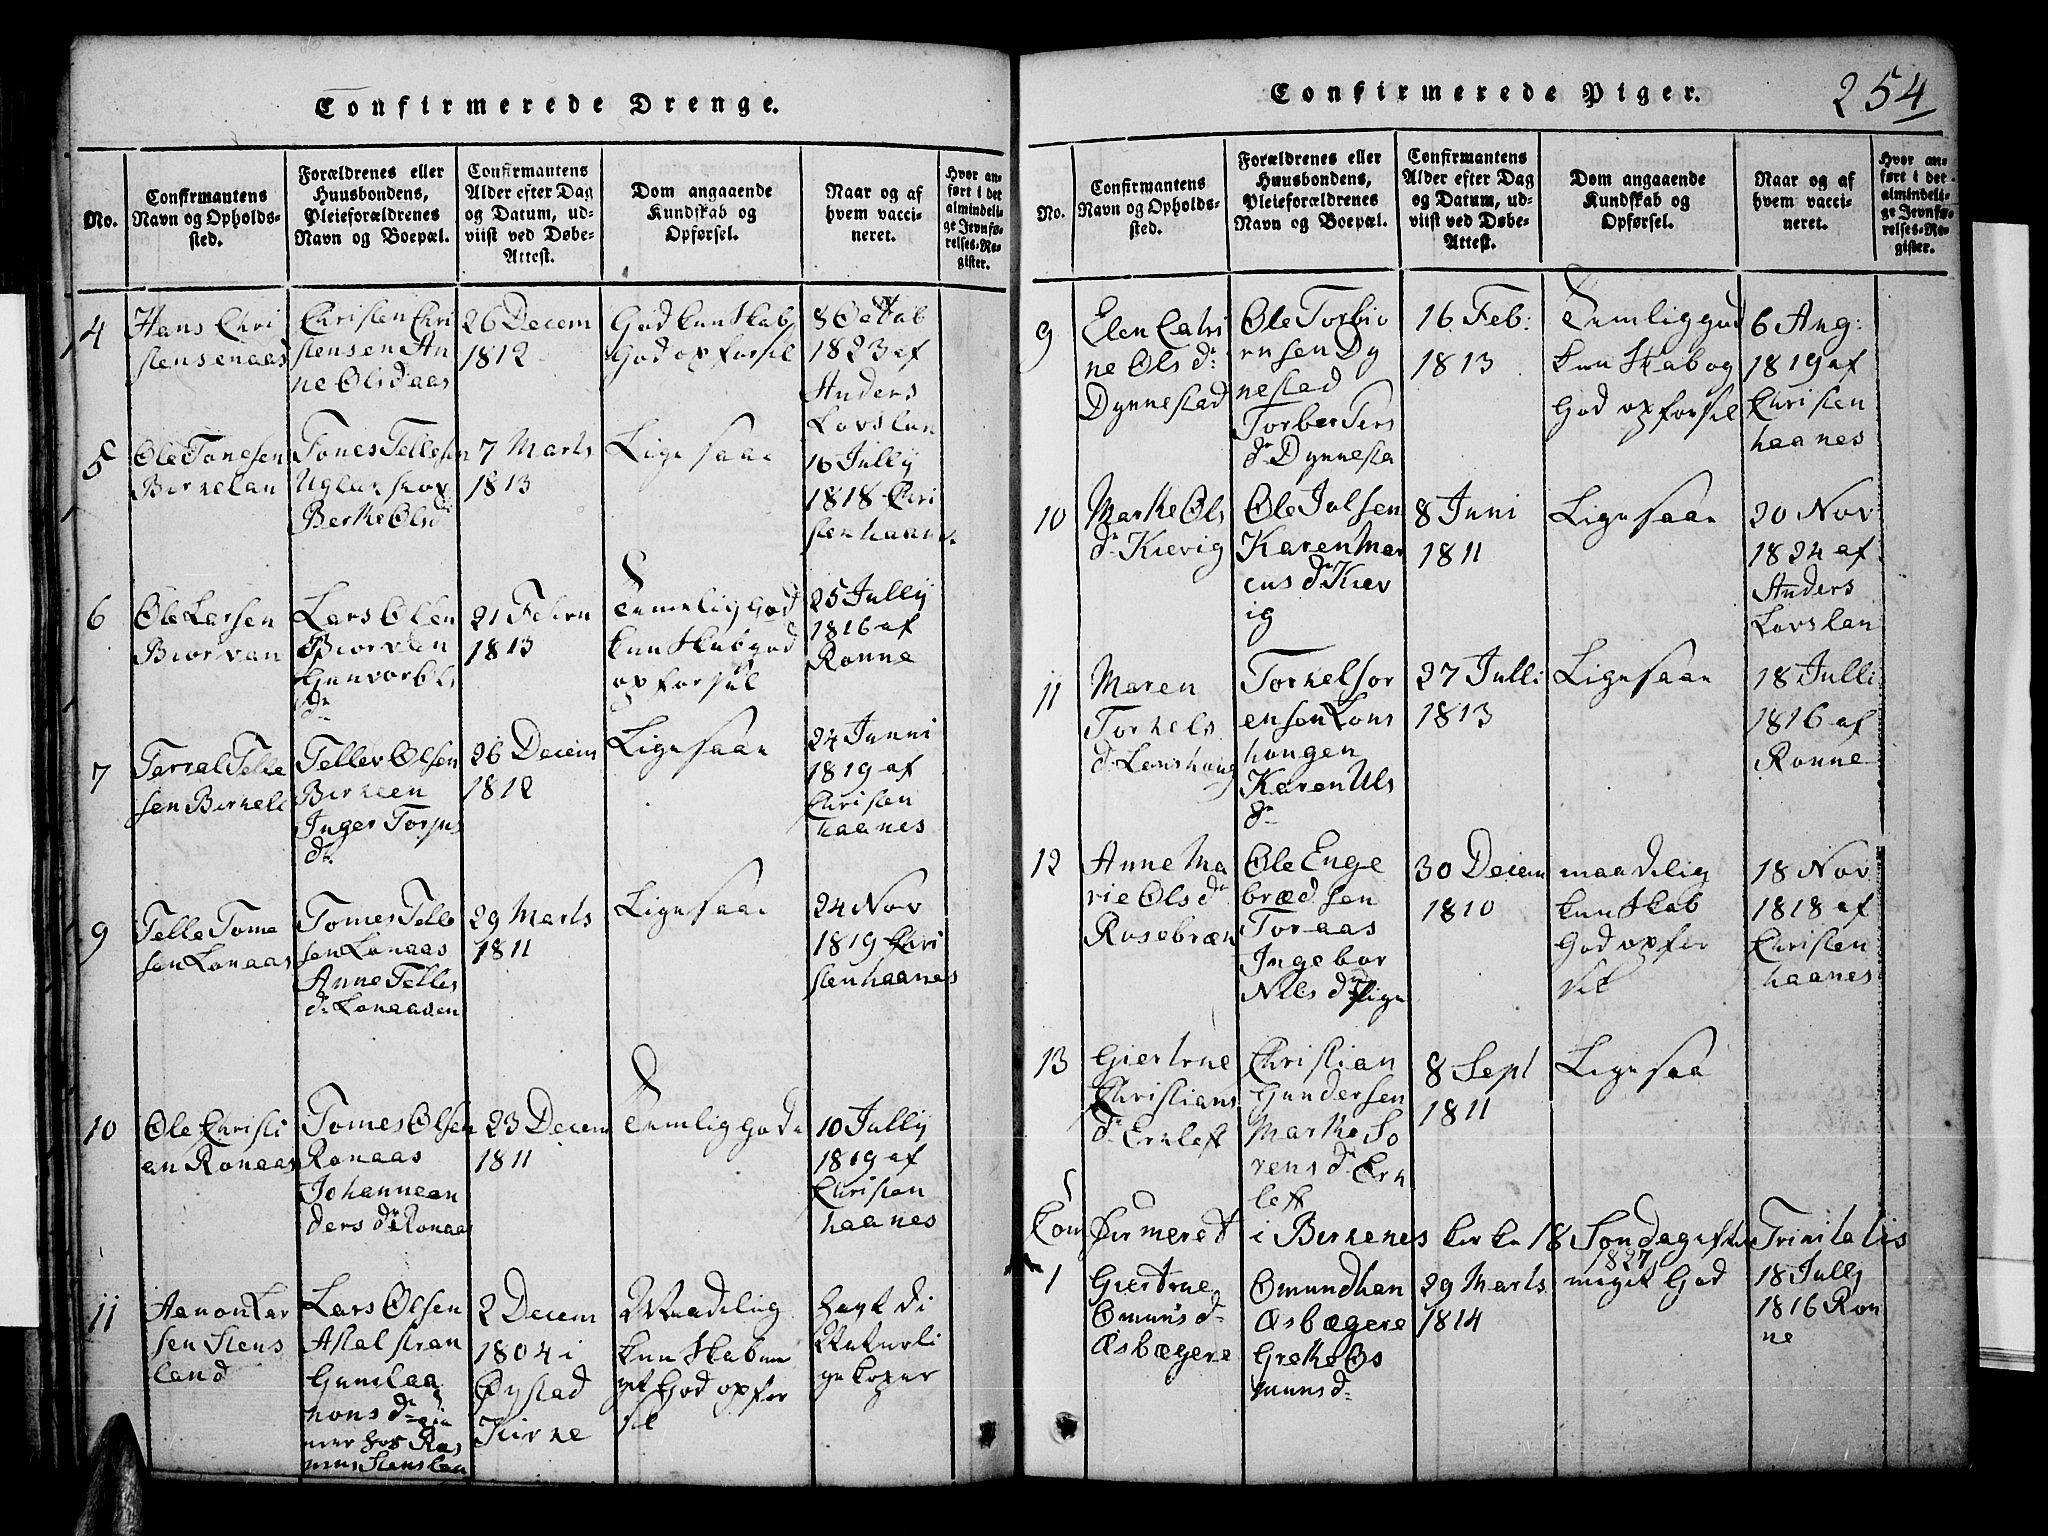 Confirmerede Drenge.
No.
Confirmantens Navn og Opholds-
sted.
Forældrenes eller
Huusbondens,
Pleieforældrenes
Navn og Boepæl.
Confirmantens
Alder efter Dag
og Datum, ud-
viist ved Døbe-
Attest.
Dom angaaende
Kundskab og
Opførsel.
Naar og af
hvem vacci-
neret.
Hvor an-
ført i det
almindeli-
ge Jevnfø-
relses-Re-
gister.
4
Hans Chri
stensen aas
Christen Chri
stensen An
ne Olsd aas
26 Decem
1812
God kunskab
God opforsel
8 Octob
1823 af
Anders
Lovslan
5
Ole Tonesen
Birkelan
Tones Tellesen
Berthe Olsd
7 Marts
1813
Ligesaa
16 Jully
1818 Chri
sten haanes
6
Ole Larsen
Biorvan
Lars Olsen
Biorvan
Gunvor Ols
dr
21 Febru
1813
Temelig God
kunskab god
opforsel
25 Jully
1816 af
Ronne
7
Tarral Telle
sen Birkeli
Tellev Olsen
Birkeen
Inger Torjus
dr
26 Decem
1812
Ligesaa
24 Junni
1819 af
Christen
haanes
9
Telle Tome
sen Lonaas
Tomes Telle
sen Lonaas
Anne Telles
dr Lonaasen
29 Marts
1811
Ligesaa
24 Nov
1819 Chri
sten haanes
10
Ole Christi
an Ronaas
Tomes Olsen
Ronaas
Johanne an
ders dr Ronaas
23 Decem
1811
Temlig gode
10 Jully
1819 af
Christen
haanes
11
Aanon Lar
sen Stens
land
Lars Olsen
Gunelaa
nons dr
Ras
mus Stenslan
2 Decem
1804 i
Øystad
Kirke
Maadelig
kunskab me
get God opfør
sel
hagt di
Naturli
ge koper
Confirmerede Piger.
254
No.
Confirmantens
Navn og Opholds-
sted.
Forældrenes eller
Huusbondens,
Pleieforældrenes
Navn og Boepæl.
Confirmantens
Alder efter Dag
og Datum, ud-
viist ved Døbe-
Attest.
Dom angaaende
Kundskab og
Opførsel.
Naar og af
hvem vacci-
neret.
Hvor an-
ført i det
almindeli-
ge Jevnfø-
relses-Re-
gister.
9
Elen Catri
ne Ols dr
Dynnestad
Ole Torbio
rnsen Dy
nestad
Torber Ters
dr Dynnesta
16 Feb:
1813
Temlig god
kunskab og
God opforsel
6 Aug:
1819 af
Christen
haanes
10
Marthe Ols
dr Kievig
Ole Jolsen
Karen Mar
cus dr Kiev
ig
8 Juni
1811
Ligesaa
20 Nov
1824 af
Anders
Lovslan
11
Maren
Torkels
dr Lonshaug
Torkel Sor
ensen Lons
hougen
Karen Uls
dr
27 Julli
1813
Ligesaa
18 Julli
1816 af
Ronne
12
Anne Ma
rie Ols dr
Rosebræn
Ole Enge
bræd sen
Toraas
Ingebor
Niels dr Pige
30 Decem
1810
maadelig
kunskab
God opfør
sel
18 Nov
1818 af
Christen
haanes
13
Giertrue
Christians
dr Erkleft
Christian
Gundersen
Marthe So
rens dr Erk
left
8 Sept
1811
Ligesaa
Confirmeret i Birkenes kerke 18 Sondag efter Trinitatis
1827
1
Giertrue
Omuns dr
Øsbægere
Omund han
Øsbægere
Grethe Os
muns dr
29 Marts
1814
meget God
18 Jully
1816 Ron
ne